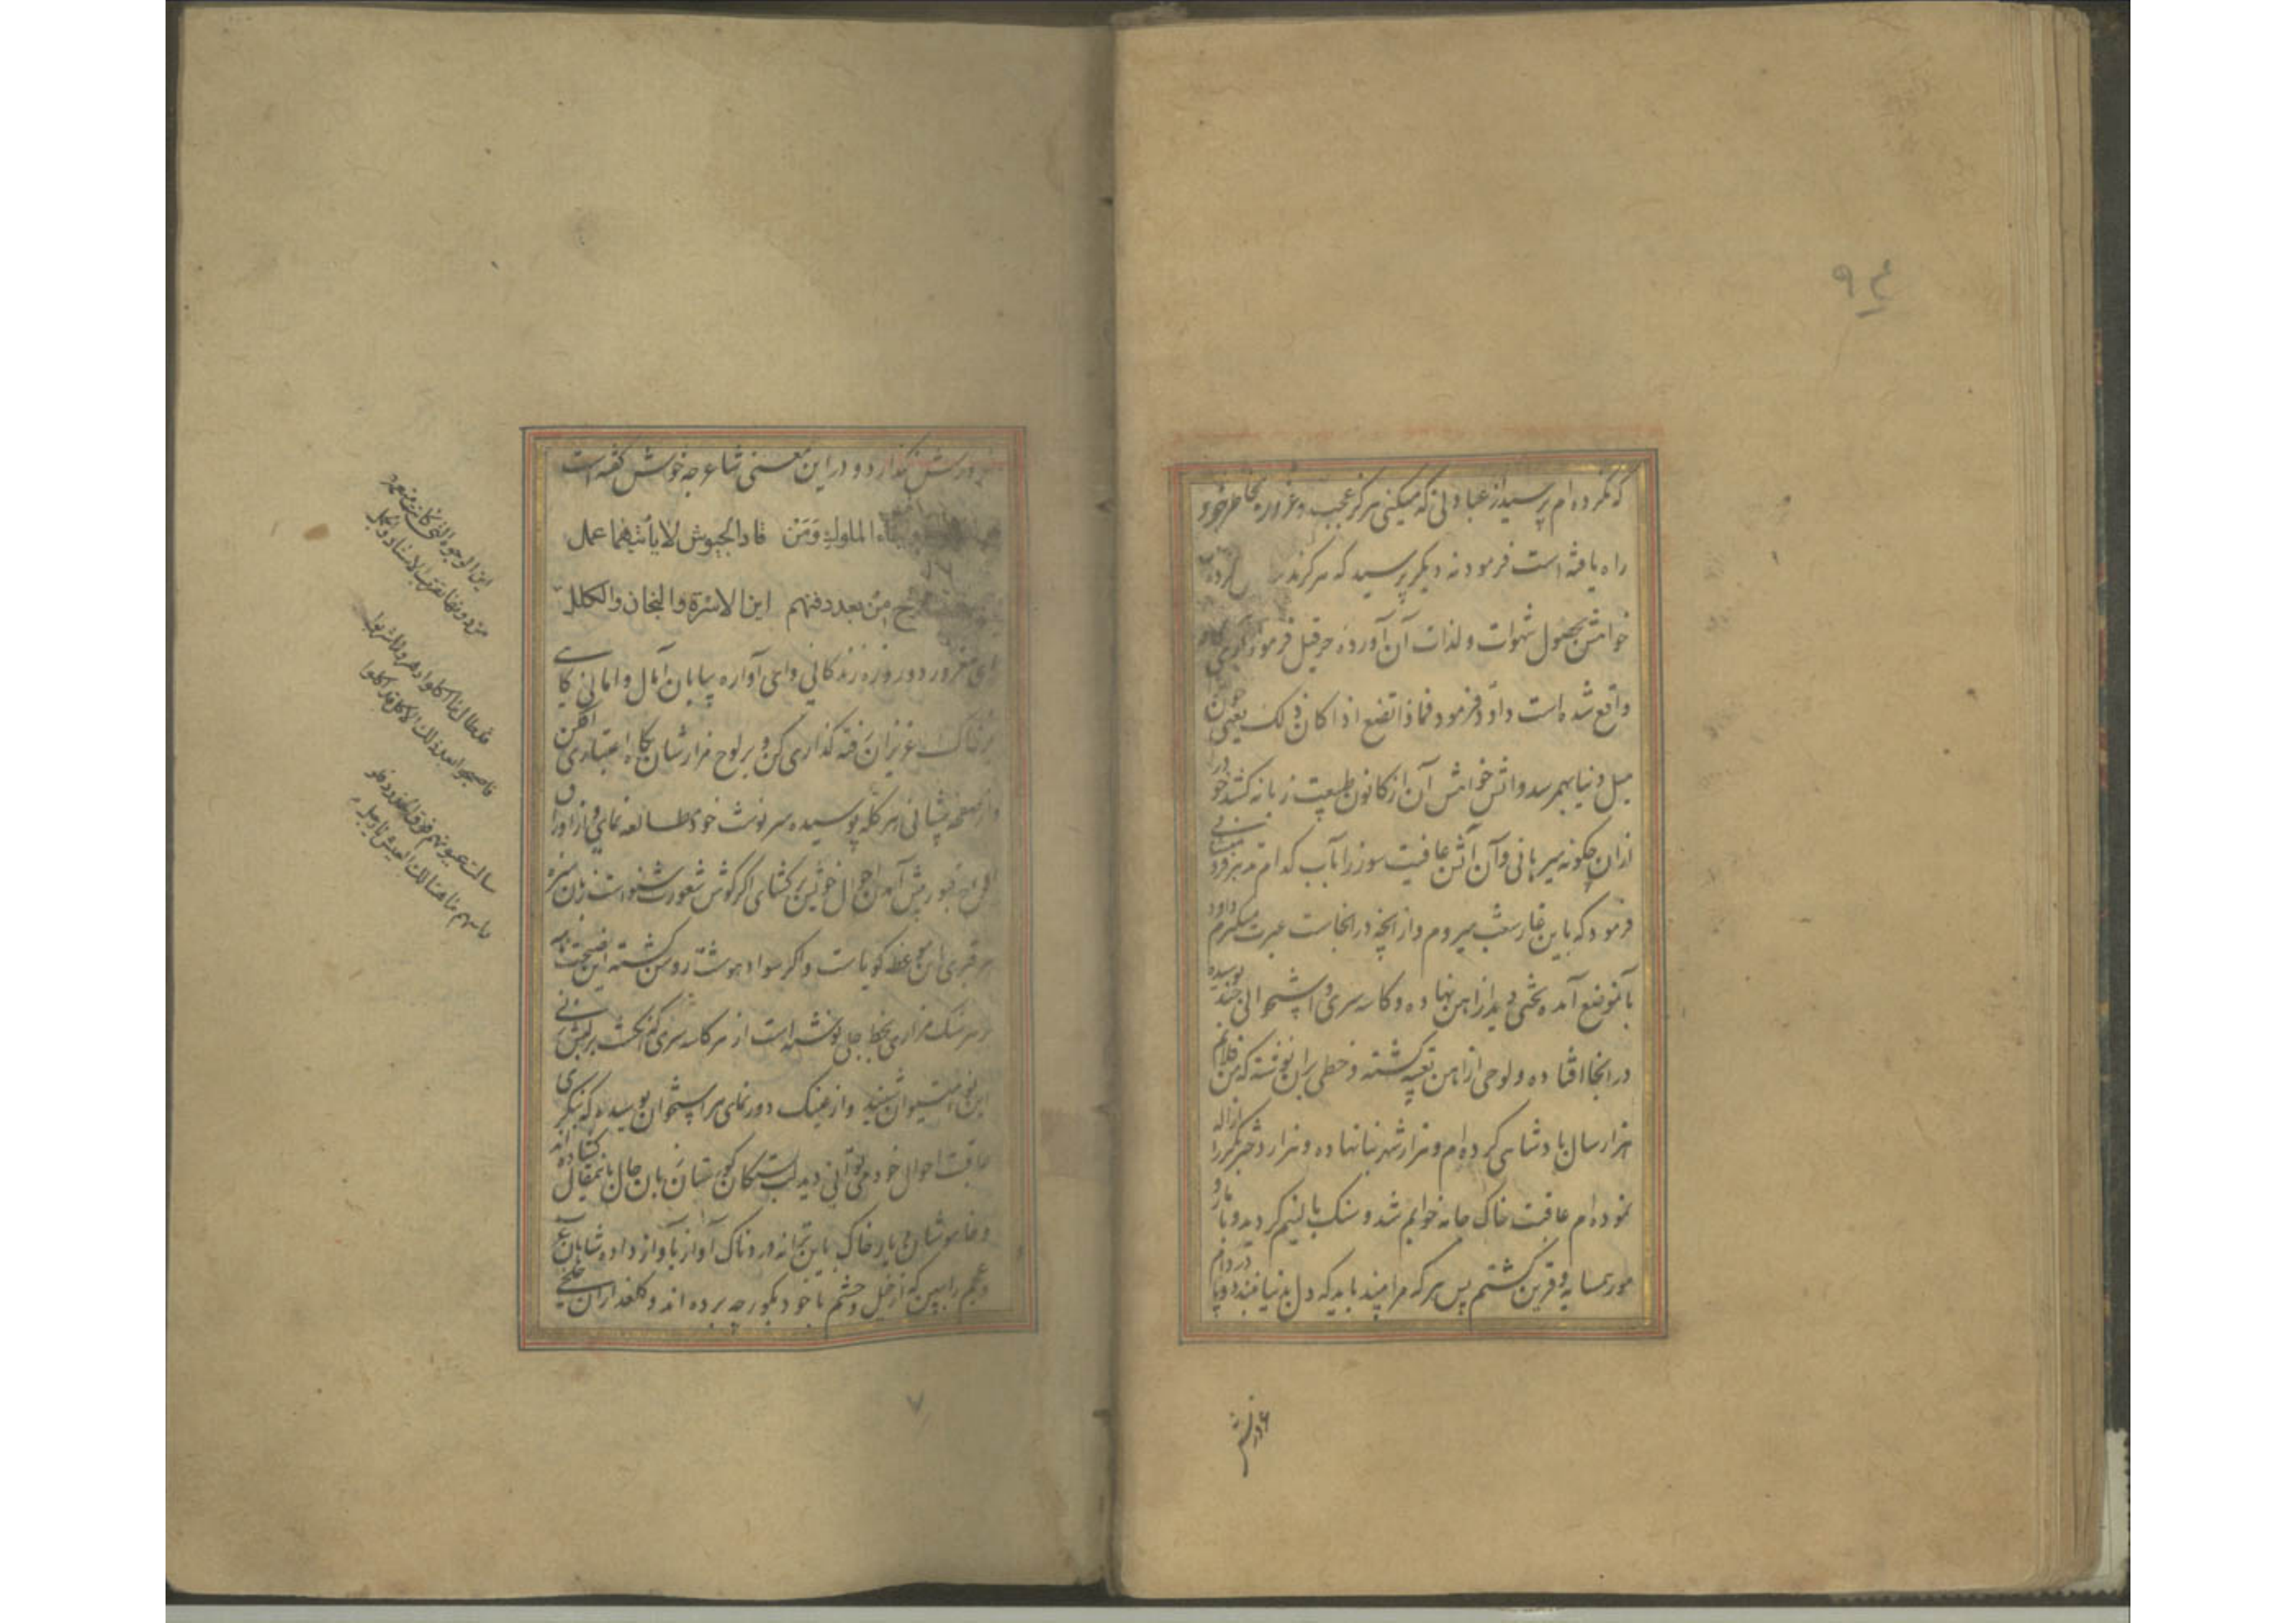 ۹۴
که نکرده‌ام پرسید از عبادتی که میکنی هرگز عجب و غرور بخاطر
راه یافته است فرمود نه دیگر پرسید که هرگز کرده
خواهش بحصول شهوات و لذات آن آورده حزقیل فرمود آری گاه
واقع شده است داود فرمود فماذا تصنع اذا کان ذلک یعنی چون
میل دنیا بهمرسد و اتش خواهش آن از کانون طبیعت زبانه کشد خود را
ازان چکونه میرهانی و آن آتش عافیت سوز را بآب کدام تدبیر فرو
فرمود که باین غار شعب میروم و از آنچه در انجاست عبرت میگیرم داود
بآنموضع آمده تختی دید از اهن نهاده و کاسه سری و استخوانی چند پوسیده
در انجا افتاده و لوحی از اهن تعبیه کشته و خطی بران نوشته که من فلانم
هزار سال پادشاهی کرده‌ام و هزار شهر بنا نهاده و هزار دختر بکر را ازاله
نموده‌ام عاقبت خاک جامه خوابم شد و سنک بالینم کردید و با مار و
مور همسایه و قرین کشتم پس هر که مرا بیند باید که دل بدنیا نبندد و پا در دام
غرورش نگذارد و در این معنی شاعر چه خوش کفته است
الملوک وَمَنْ قاد الجیوش لا یا بئسما عمل
من بعد دفنهم این الاسرّة والتیجان والکلل
ای مغرور دو روزه زندکانی وای آواره بیابان آمال و امانی کاهی
بر خاک عزیزان رفته کذاری کن و بر لوح مزارشان نکاه اعتباری افکن
و از صفحه پیشانی هر کله پوسیده سرنوشت خود مطالعه نمای و از اوراق
الواح قبور پیش آمد احوال خویش برکشای اکر کوش شعورت شنواست زبان سبزه
هر قبری این موعظه کویاست و اکر سواد هوشت روشن کشته این نصیحت بر
هر سنک مزاری بخط جلی نوشته است از هر کاسه سری که انکشت بر لبش زنی
این نوا میتوان شنید و از عینک دورنمای هر استخوان پوسیده که بنکری
عاقبت احوال خود می‌توانی دید لب بستکان کورستان زبان حال باینمقال کشاده اند
و خاموشان دیار خاک باین ترانه دردناک آواز بآواز داده شاهان عرب
و عجم را ببین که از خیل و حشم با خود بکور چه برده اند و کلعذاران خلخی
این الوجوه التی کانت منعمة
من دونها تضرب الاستار والکلل
قد طال ما اکلوا دهرا وما شربوا
فاصبحوا بعد ذلک الاکل قد اکلوا
سالت عیونهم فوق الخدود
۷